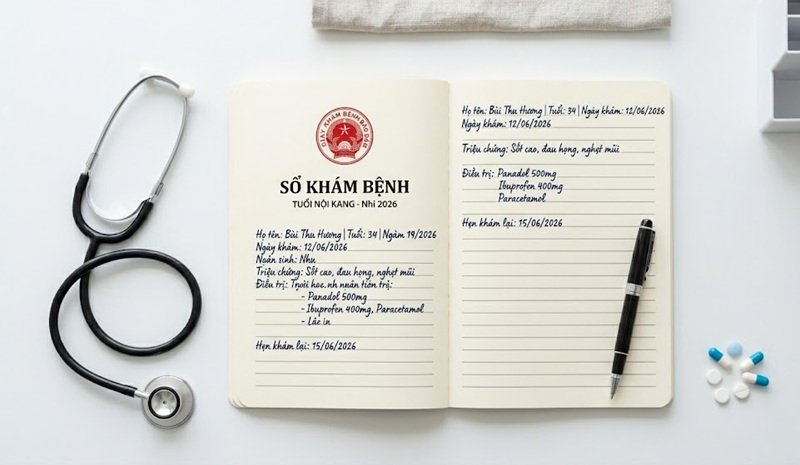 SỔ KHÁM BỆNH
TUỔI NỘI KANG - Nhi 2026
Họ tên: Bùi Thu Hương | Tuổi: 34 | Ngàm 19/2026
Ngày khám: 12/06/2026
Ngoán sinh: Như
Triệu chứng: Sốt cao, đau họng, nghẹt mũi
Điều trị: nhân tiên trị:
- Panadol 500mg
- Ibuprofen 400mg, Paracetamol
- Lắc in
Hẹn khám lại: 15/06/2026
Họ tên: Bùi Thu Hương | Tuổi: 34 | Ngày khám: 12/06/2026
Ngày khám: 12/06/2026
Triệu chứng: Sốt cao, đau họng, nghẹt mũi
Điều trị: Panadol 500mg
Ibuprofen 400mg
Paracetamol
Hẹn khám lại: 15/06/2026